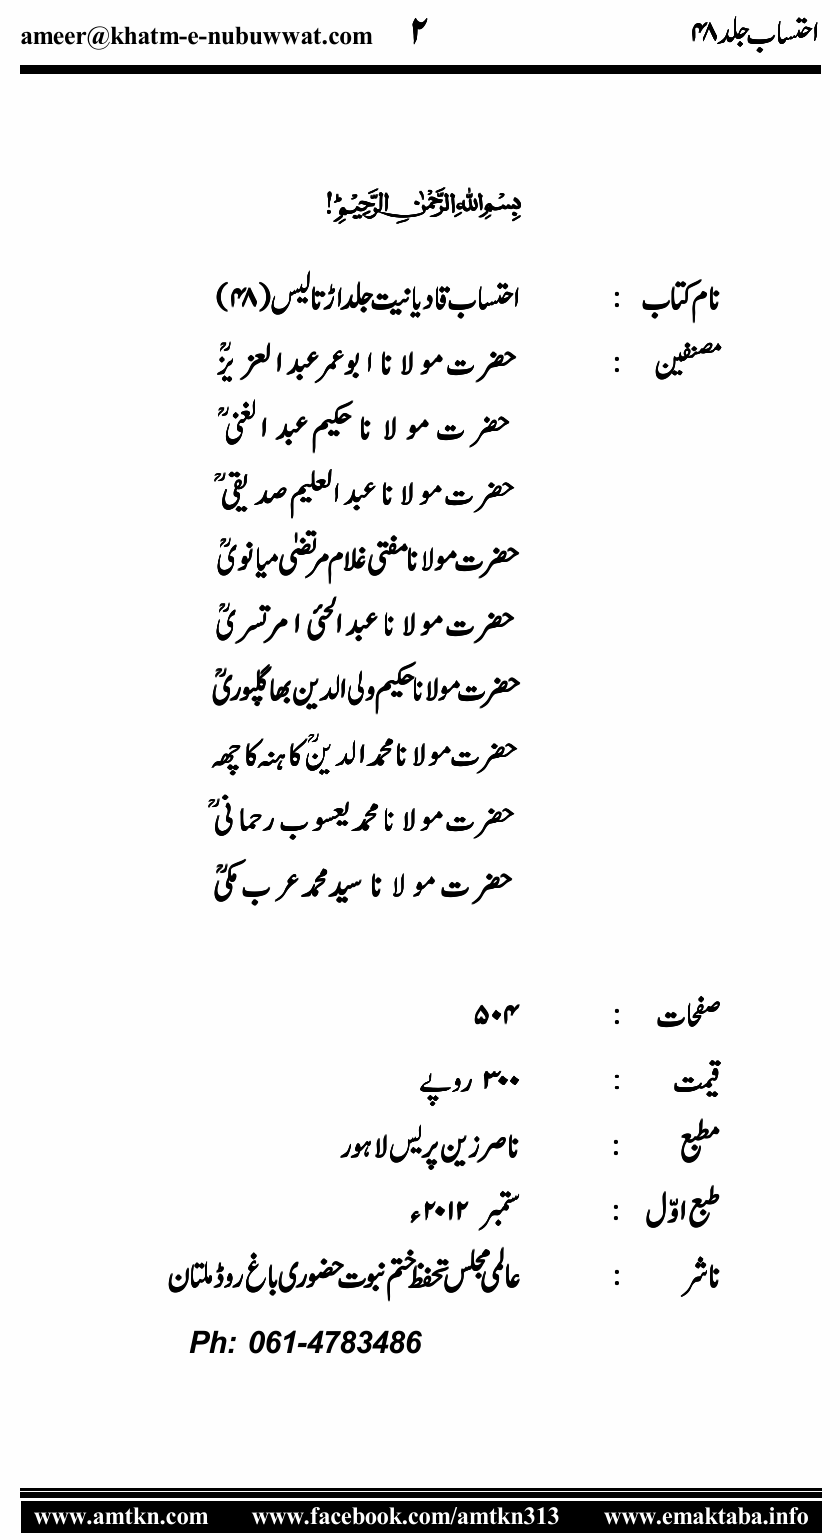 احتساب جلد ۴۸ ۲ ameer@khatm-e-nubuwwat.com
بسم اللہ الرحمن الرحیم!
نام کتاب : احتساب قادیانیت جلد اڑتالیس (۴۸)
مصنفین : حضرت مولانا ابو عمر عبدالعزیزؒ
حضرت مولانا حکیم عبدالغنیؒ
حضرت مولانا عبدالعلیم صدیقیؒ
حضرت مولانا مفتی غلام مرتضیٰ میانویؒ
حضرت مولانا عبدالحئی امرتسریؒ
حضرت مولانا حکیم ولی الدین بھاگلپوریؒ
حضرت مولانا محمد الدینؒ کاہنہ کاچھہ
حضرت مولانا محمد یعسوب رحمانیؒ
حضرت مولانا سید محمد عرب مکیؒ
صفحات : ۵۰۴
قیمت : ۳۰۰ روپے
مطبع : ناصر زین پریس لاہور
طبع اوّل : ستمبر ۲۰۱۲ء
ناشر : عالمی مجلس تحفظ ختم نبوت حضوری باغ روڈ ملتان
Ph: 061-4783486
www.amtkn.com www.facebook.com/amtkn313 www.emaktaba.info